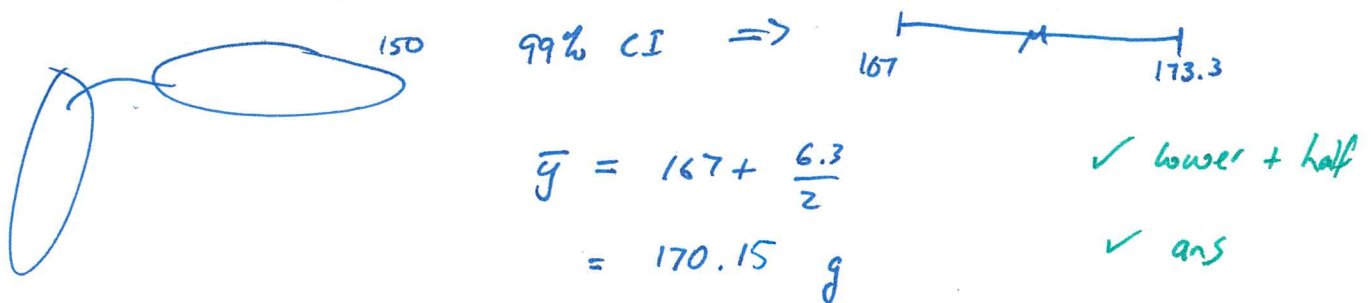 150
99% CI => 167 μ 173.3
ȳ = 167 + 6.3/2 ✓ lower + half
= 170.15 g ✓ ans